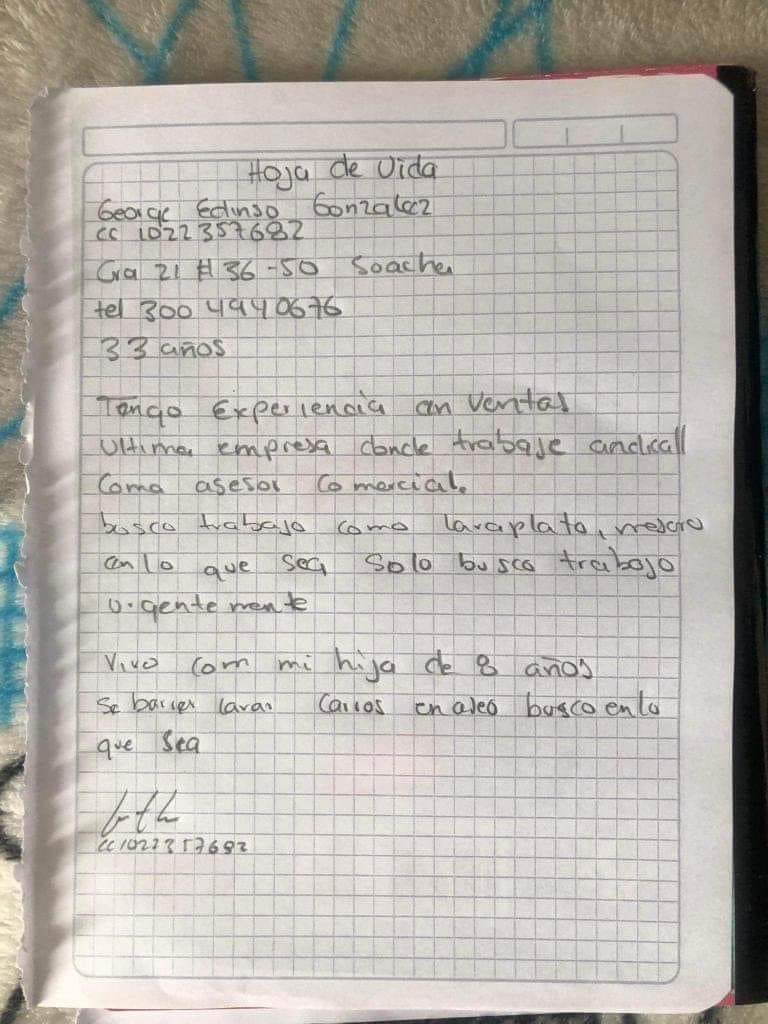 Hoja de Vida
George Edinso Gonzalez
cc 1022357682
Cra 21 # 36-50 Soacha
tel 300 4940676
33 años
Tengo Experiencia en ventas
Ultima empresa donde trabaje andicall
Como asesor Comercial.
busco trabajo como lavaplato, mesero
en lo que sea solo busco trabajo
urgentemente
Vivo com mi hija de 8 años
Se barrer lavar Carros en aseo busco en lo
que sea
cc 1022357682